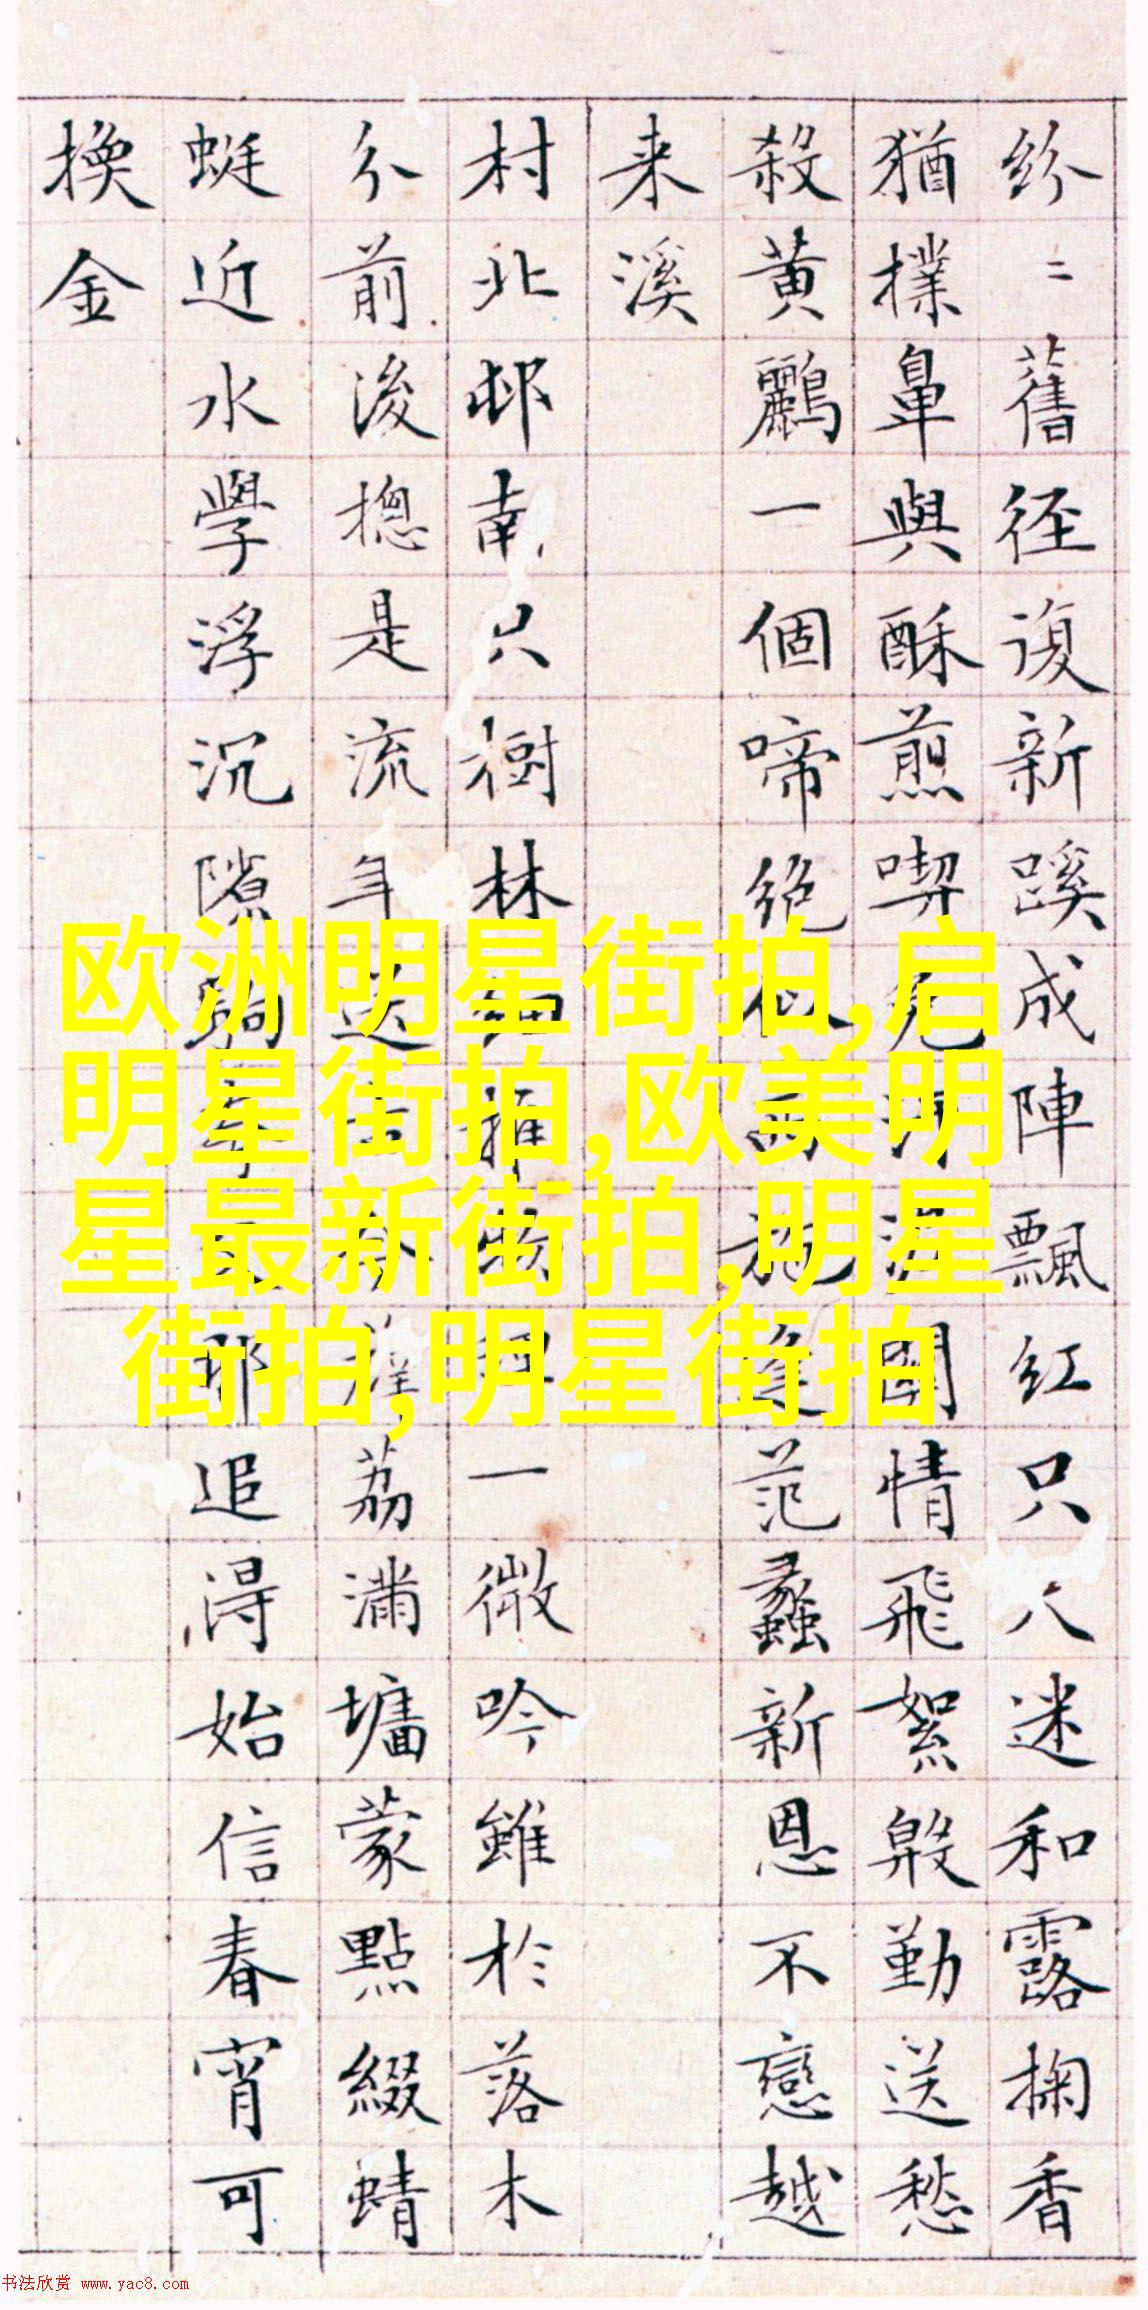 紛〻舊徑復新蹊成陣飄紅只迷和露掬香
猶撲鼻與酥煎喫免泥關情飛絮殷勤送愁
殺黃鸝一個啼絕似西施逢范蠡新恩不戀越
来溪
村北邨南只樹林細推物理一微吟雖於落木
分前後摠是流年送古今薜荔滿墉蒙點綴蜻
蜓近水學浮沉隙駒那追得始信春宵可
換金
欧洲明星街拍,启
明星街拍,欧美明
星最新街拍,明星
街拍,明星街拍
书法欣赏 www.yac8.com